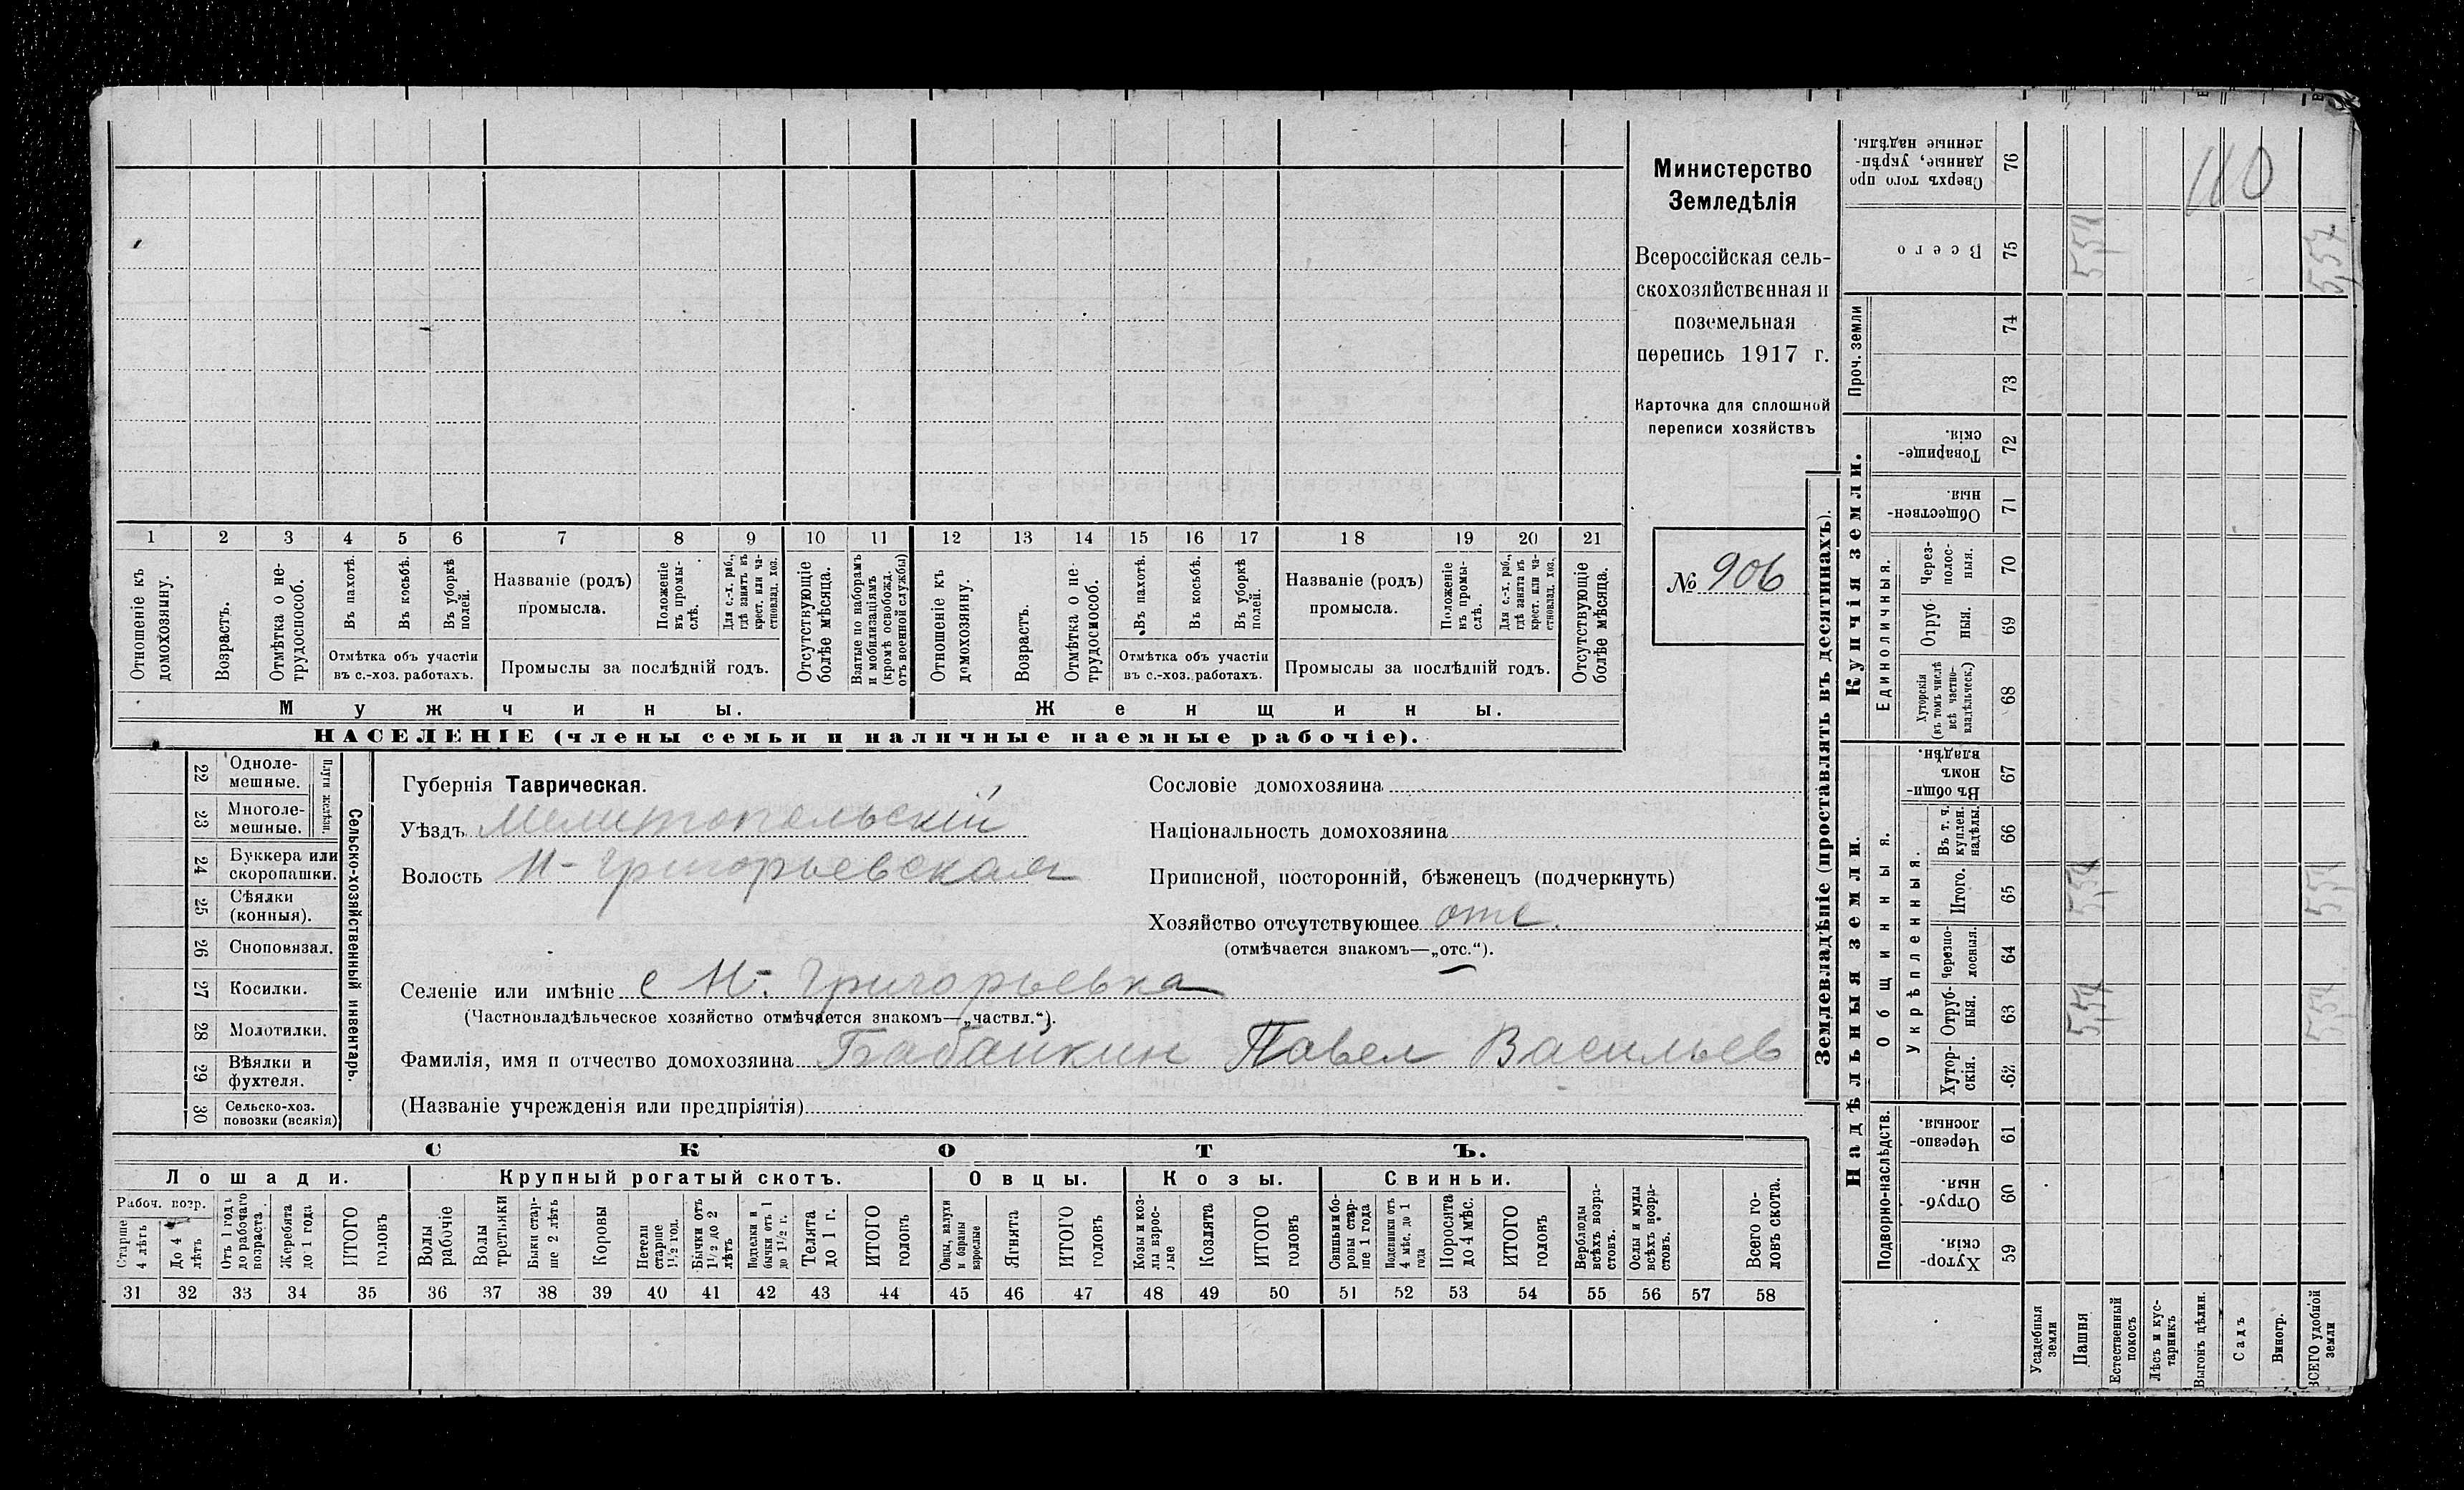 Министерство
Земледѣлія
Всероссійская сель-
скохозяйственная и
поземельная
перепись 1917 г.
Карточка для сплошной
переписи хозяйствъ
№ 906
1 2 3 4 5 6 7 8 9 10 11 12 13 14 15 16 17 18 19 20 21
Отношеніе къ домохозяину.
Возрастъ.
Отмѣтка о не-трудоспособ.
Въ пахотѣ.
Въ косьбѣ.
Въ уборкѣ полей.
Отмѣтка объ участіи
въ с.-хоз. работахъ.
Названіе (родъ)
промысла.
Положеніе въ промы-слѣ.
Для с.-х. раб., гдѣ занятъ въ крест. или ча-стновлад. хоз.
Промыслы за послѣдній годъ.
Отсутствующіе болѣе мѣсяца.
Взятые по наборамъ и мобилизаціямъ (кромѣ освобожд. отъ военной службы)
Отношеніе къ домохозяину.
Возрастъ.
Отмѣтка о не-трудоспособ.
Въ пахотѣ.
Въ косьбѣ.
Въ уборкѣ полей.
Отмѣтка объ участіи
въ с.-хоз. работахъ.
Названіе (родъ)
промысла.
Положеніе въ промы-слѣ.
Для с.-х. раб., гдѣ занята въ крест. или ча-стновлад. хоз.
Промыслы за послѣдній годъ.
Отсутствующіе болѣе мѣсяца.
Мужчины.
Женщины.
НАСЕЛЕНІЕ (члены семьи и наличные наемные рабочіе).
Сельско-хозяйственный инвентарь.
Плуги желѣзн.
22 Одноле-
мешные.
23 Многоле-
мешные.
24 Буккера или
скоропашки.
25 Сѣялки
(конныя).
26 Сноповязал.
27 Косилки.
28 Молотилки.
29 Вѣялки и
фухтеля.
30 Сельско-хоз.
повозки (всякія)
Губернія Таврическая.
Уѣздъ Мелитопольскій
Волость Н-Григорьевская
Селеніе или имѣніе с Н-Григорьевка
(Частновладѣльческое хозяйство отмѣчается знакомъ—„частвл.“).
Фамилія, имя и отчество домохозяина Бабайкин Павел Васильев
(Названіе учрежденія или предпріятія)
Сословіе домохозяина
Національность домохозяина
Приписной, посторонній, бѣженецъ (подчеркнуть)
Хозяйство отсутствующее отс.
(отмѣчается знакомъ—„отс.“).
СКОТЪ.
Лошади.
Крупный рогатый скотъ.
Овцы.
Козы.
Свиньи.
Рабоч. возр.
Старше 4 лѣтъ
До 4 лѣтъ
Отъ 1 года до рабочаго возраста
Жеребята до 1 года
ИТОГО головъ
Волы рабочіе
Волы третьяки
Быки стар-ше 2 лѣтъ
Коровы
Нетели старше 1½ год.
Бычки отъ 1½ до 2 лѣтъ
Подтелки и бычки отъ 1 до 1½ г.
Телята до 1 г.
ИТОГО головъ
Овцы, валухи и бараны взрослые
Ягнята
ИТОГО головъ
Козы и коз-лы взрос-лые
Козлята
ИТОГО головъ
Свиньи и бо-ровы стар-ше 1 года
Подсвинки отъ 4 мѣс. до 1 года
Поросята до 4 мѣс.
ИТОГО головъ
Верблюды всѣхъ возра-стовъ.
Ослы и мулы всѣхъ возра-стовъ.
Всего го-ловъ скота.
31 32 33 34 35 36 37 38 39 40 41 42 43 44 45 46 47 48 49 50 51 52 53 54 55 56 57 58
Землевладѣніе (проставлять въ десятинахъ).
Надѣльныя земли.
Подворно-наслѣдств.
Хутор-скія. 59
Отруб-ныя. 60
Черезпо-лосныя. 61
Общинныя.
Укрѣпленныя.
Хутор-скія. 62
Отруб-ныя. 63
Черезпо-лосныя. 64
Итого. 65
Въ т. ч. куплен. надѣлы. 66
Въ общин-номъ владѣн. 67
Купчія земли.
Единоличныя.
Хуторскія (въ томъ числѣ всѣ частно-владѣльческ.) 68
Отруб-ныя. 69
Через-полос-ныя. 70
Обществен-ныя. 71
Товарище-скія. 72
Проч. земли
73
74
Всего 75
Сверхъ того про-данные, укрѣп-ленные надѣлы. 76
Усадебныя земли
Пашня
Естественный покосъ
Лѣсъ и кус-тарникъ
Выгонъ цѣлин.
Садъ
Виногр.
ВСЕГО удобной земли